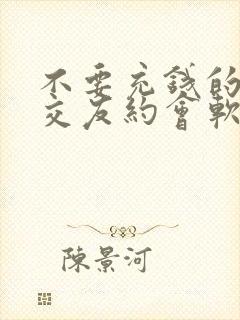 不要充錢的
交友約會軟
陳景河